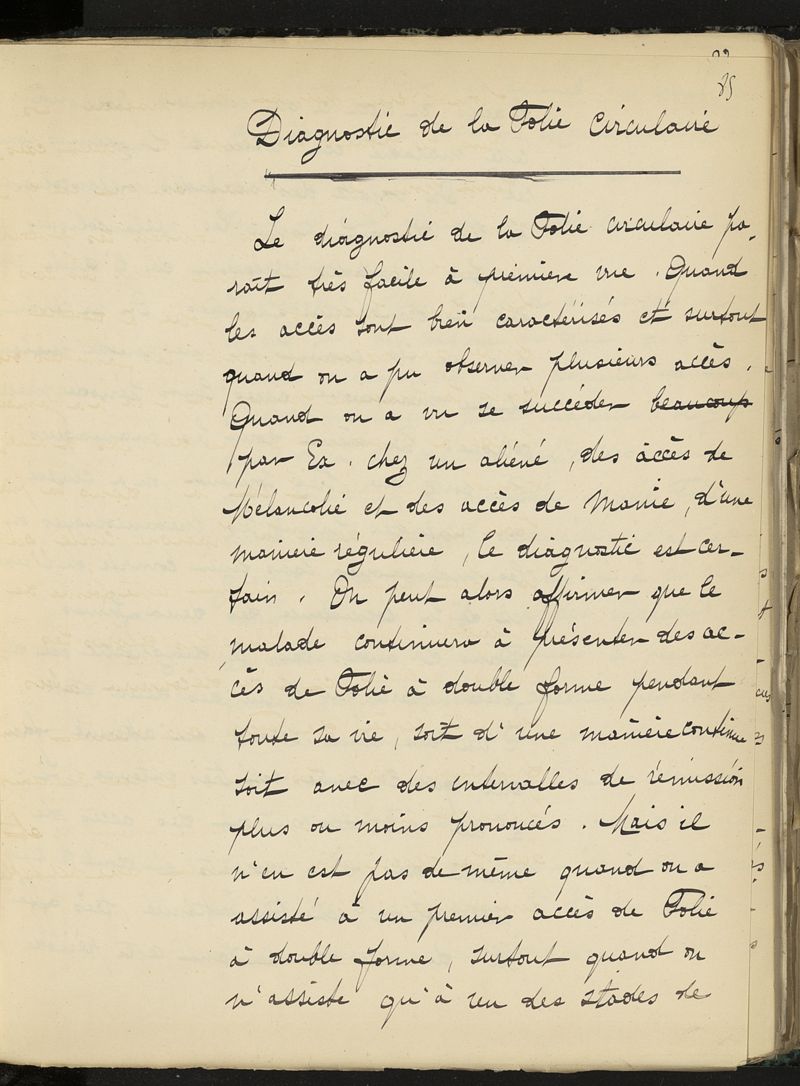 85
Diagnostic de la Folie Circulaire
Le diagnostic de la Folie circulaire pa-
raît très facile à première vue. Quand
les accès sont bien caractérisés et surtout
quand on a pu observer plusieurs accès.
Quand on a vu se succéder beaucoup
par Ex. chez un aliéné, des accès de
Mélancolie et des accès de Manie, d'une
manière régulière, le diagnostic est cer-
tain. On peut alors affirmer que le
malade continuera à présenter des ac-
cès de Folie à double forme pendant
toute sa vie, soit d'une manière continue
soit avec des intervalles de rémission
plus ou moins prononcés. Mais il
n'en est pas de même quand on a
assisté à un premier accès de Folie
à double forme, surtout quand on
n'assiste qu'à un des stades de